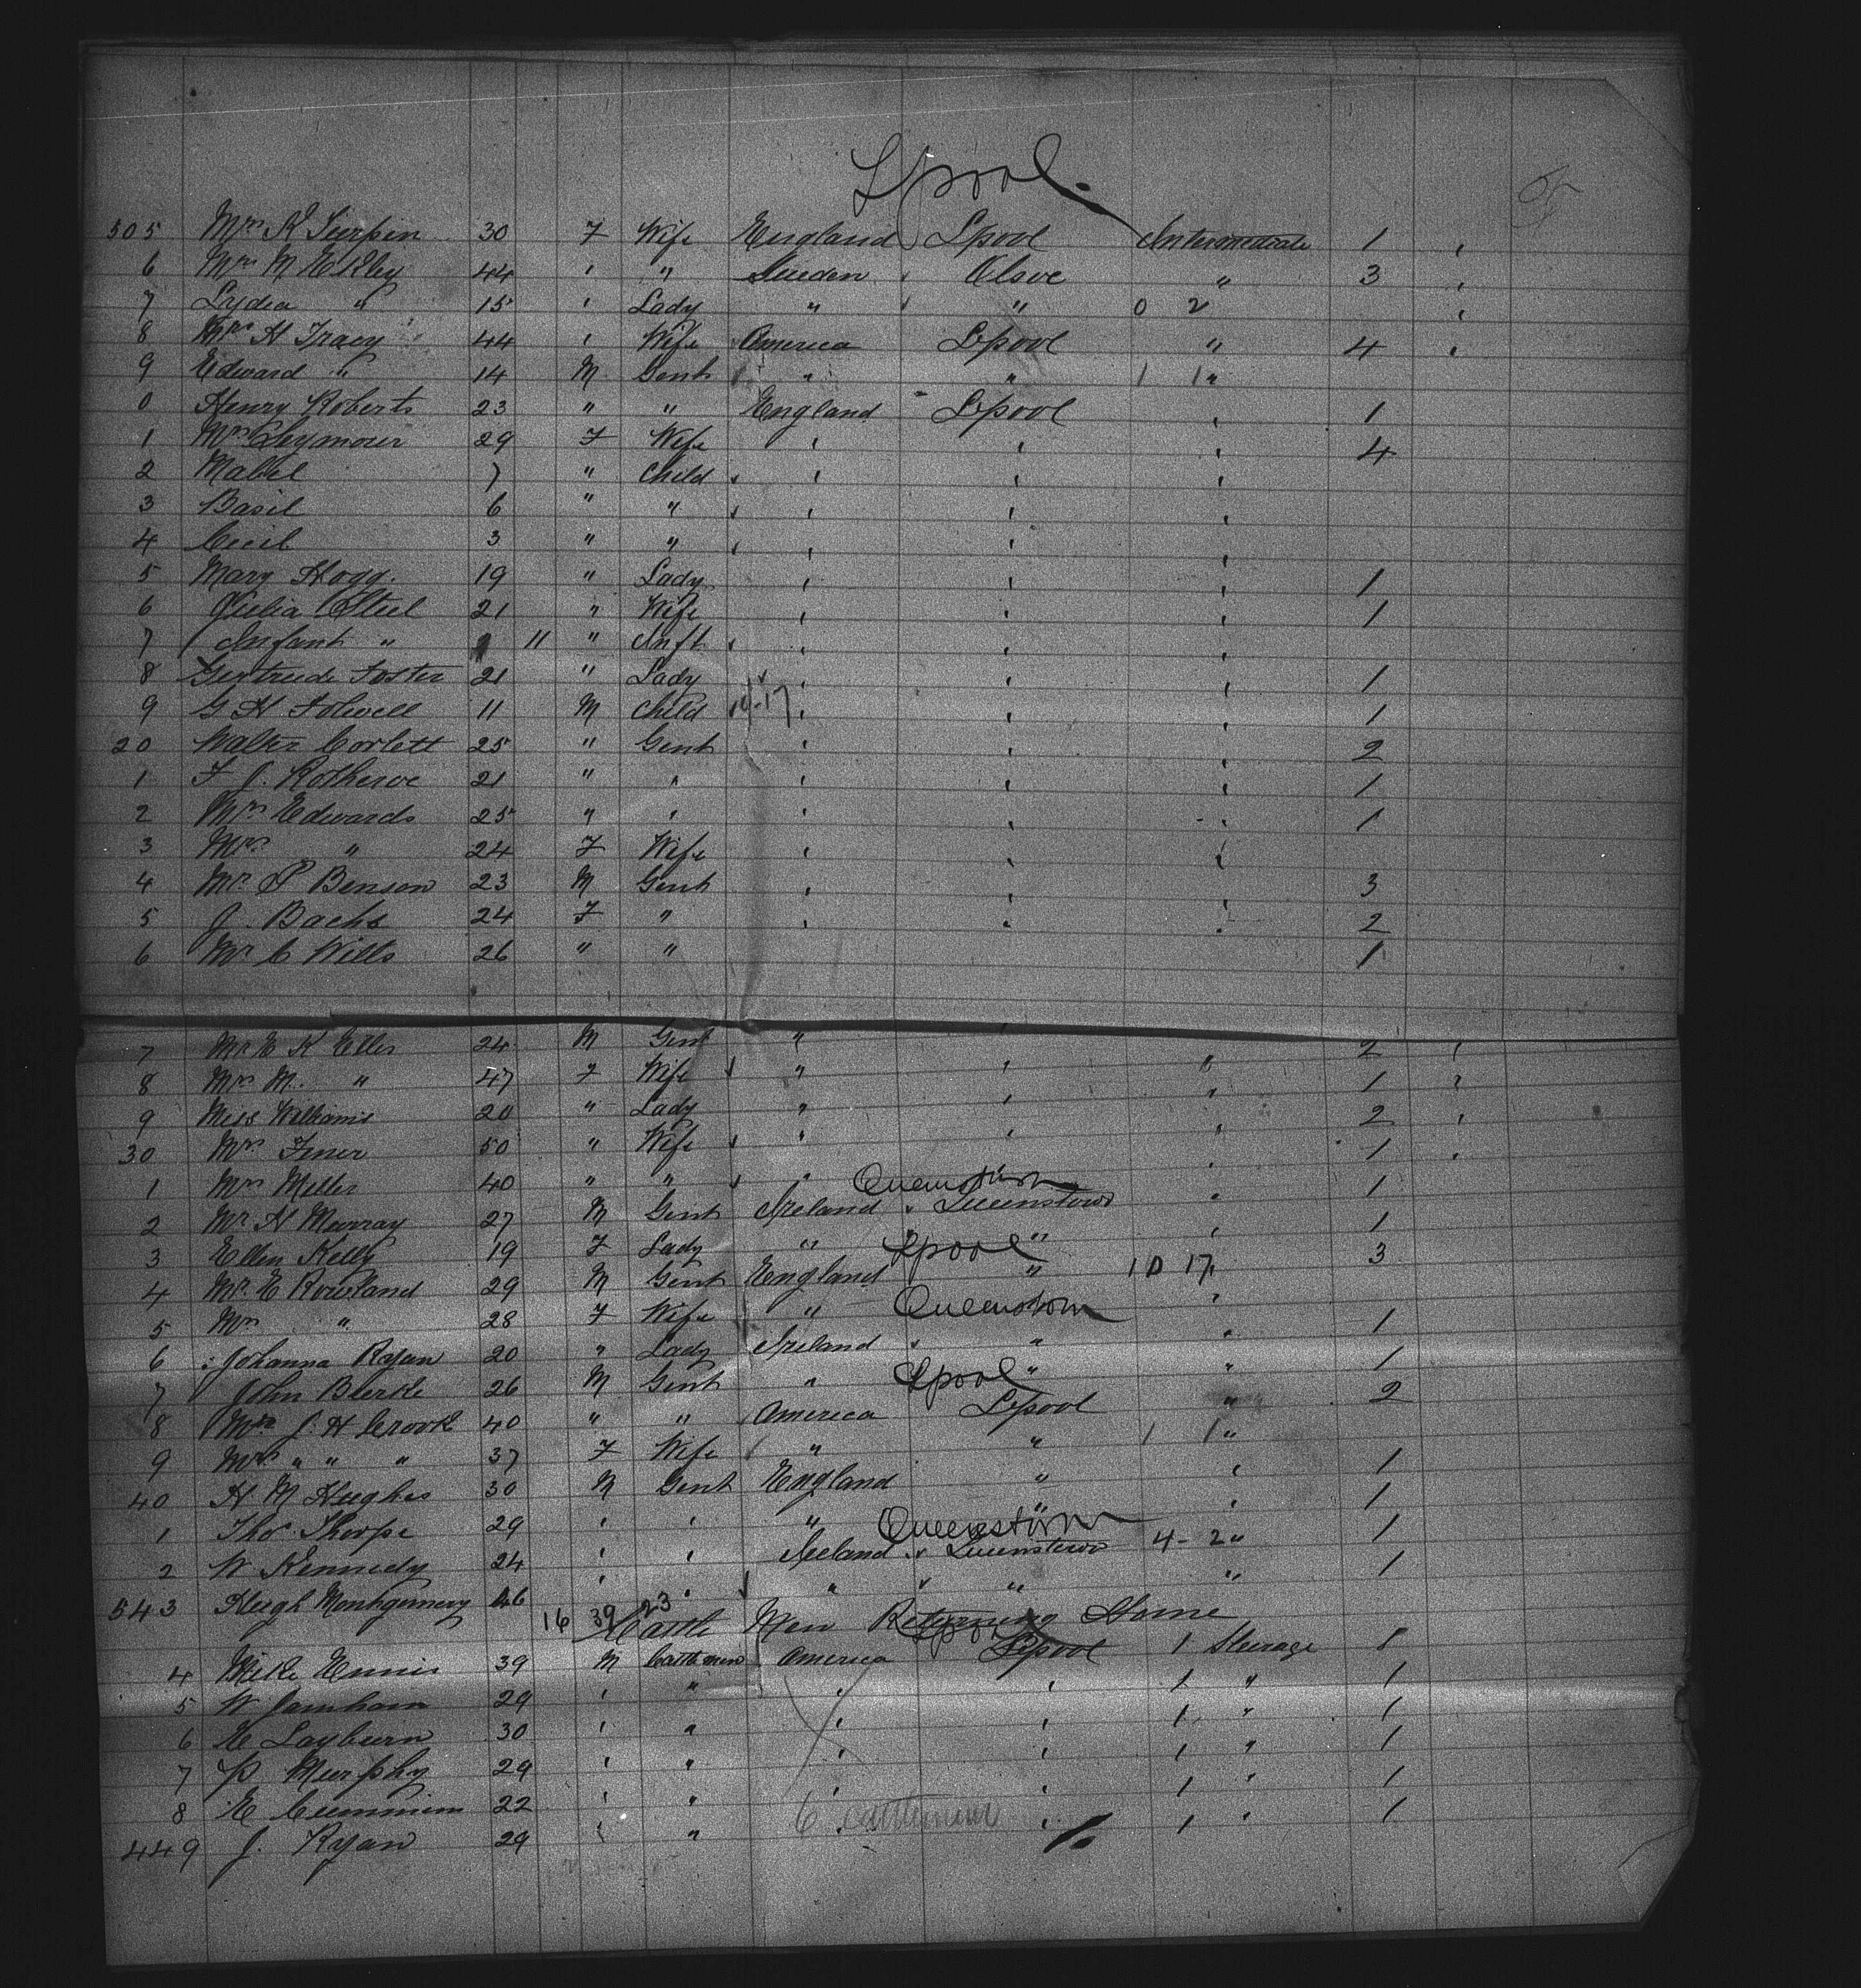 Lpool
505 Mrs K Turpin 30 F Wife England Lpool Intermediate 1
6 Mrs M Ekley 44 " " Sweden " 3
7 Lydia " 15 " Lady " " 0 2
8 Mrs H Tracy 44 " Wife America Lpool " 4
9 Edward " 14 M Gent " " 1 1 "
0 Henry Roberts 23 " " England Lpool " 1
1 Mrs Seymour 29 F Wife " " " 4
2 Mabel 7 " Child " " "
3 Basil 6 " " " " "
4 Cecil 3 " " " " "
5 Mary Hogg. 19 " Lady " " " 1
6 Julia Steel 21 " Wife " " " 1
7 Infant " 11 " Inft " " "
8 Gertrude Foster 21 " Lady " " " 1
9 G H Folwell 11 M Child 14-17 " " " 1
20 Walter Corlett 25 " Gent " " " 2
1 F J. Rotheroe 21 " " " " " 1
2 Mr Edwards 25 " " " " " 1
3 Mrs " 24 F Wife " " "
4 Mr P Benson 23 M Gent " " " 3
5 J. Bachs 24 F " " " " 2
6 Mr C Wills 26 " " 1
7 Mr E K Eller 24 M Gent " " 2
8 Mrs M. " 47 F Wife " " " 1
9 Miss Williams 20 " Lady " " " 2
30 Mrs 50 " Wife " " " 1
Queenstown
1 Mrs Miller 40 " " " " 1
2 Mr H Murray 27 M Gent Ireland Queenstown " 1
Lpool
3 Ellen Kelly 19 F Lady " " " 3
4 Mr E Rowland 29 M Gent England " 10 17 "
Queenstown
5 Mrs " 28 F Wife " " 1
6 Johanna Ryan 20 " Lady Ireland " " 1
Lpool
7 John Burke 26 M Gent " " " 2
8 Mr J. H Crook 40 " " America Lpool "
9 Mrs " " " 37 F Wife " " 1 1 " 1
40 H M Hughes 30 M Gent England " " 1
Queenstown
1 Thos Thorpe 29 " " " " 1
2 W Kennedy 24 " " Ireland Queenstown 4-2 " 1
543 Hugh Montgomery 46 " " " " "
16 39 23 Cattle Men Returning Home
Lpool
4 Mike Ennis 39 M Cattlemen America Lpool 1 Steerage 1
5 W Jamham 29 " " " " 1 " 1
6 E Layburn 30 " " " " 1 " 1
7 P Murphy 29 " " " " 1 " 1
8 E Cummim 22 " " " " 1 " 1
449 J. Ryan 29 " " " " 1 " 1
6 cattlemen